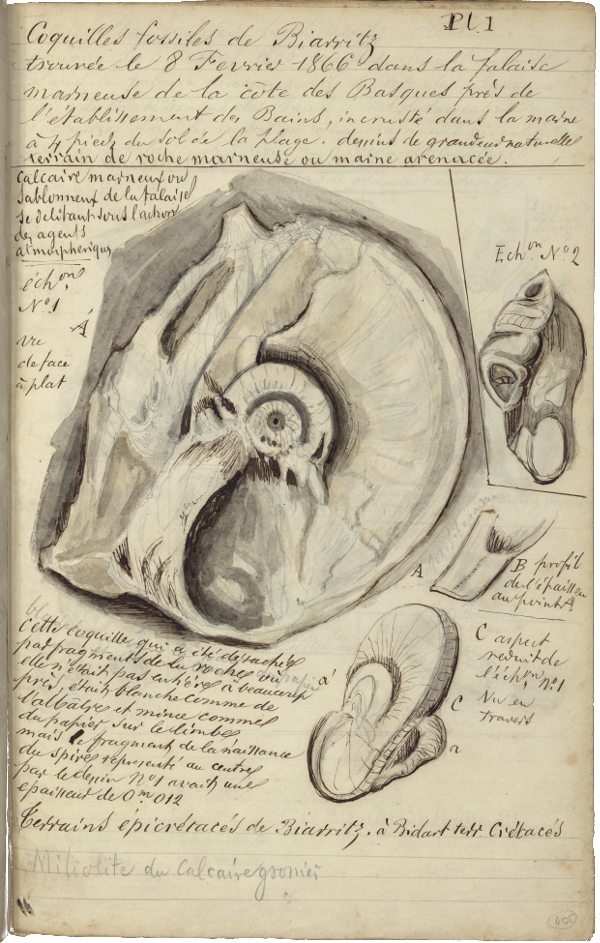 Pl. 1
Coquilles fossiles de Biarritz
trouvée le 8 Fevrier 1866 dans la falaise
marneuse de la côte des Basques près de
l'établissement des Bains, incrusté dans la marne
à 4 pieds du sol de la plage. dessins de grandeur naturelle
terrain de roche marneuse ou marne arenacée.
Calcaire marneux ou
sablonneux de la falaise
se délitant sous l'action
des agents
atmospheriques
éch.on
N.o 1
A
vue
de face
à plat
Ech.on N.o 2
A
B profil
de l'épaisseur
au point A
C aspect
reduit de
l'éch.on n.o 1
Vu en
travers
a'
C
a
Cette coquille qui a été détachée
par fragments de la roche où
elle n'était pas entière à beaucoup
près, était blanche comme de
l'albâtre et mince comme
du papier sur le limbe
mais le fragment de la naissance
du spire representé au centre
par le dessin N.o 1 avait une
epaisseur de 0m 012
Terrains épicrétacés de Biarritz. à Bidart terr Crétacés
Miliolite du Calcaire grossier